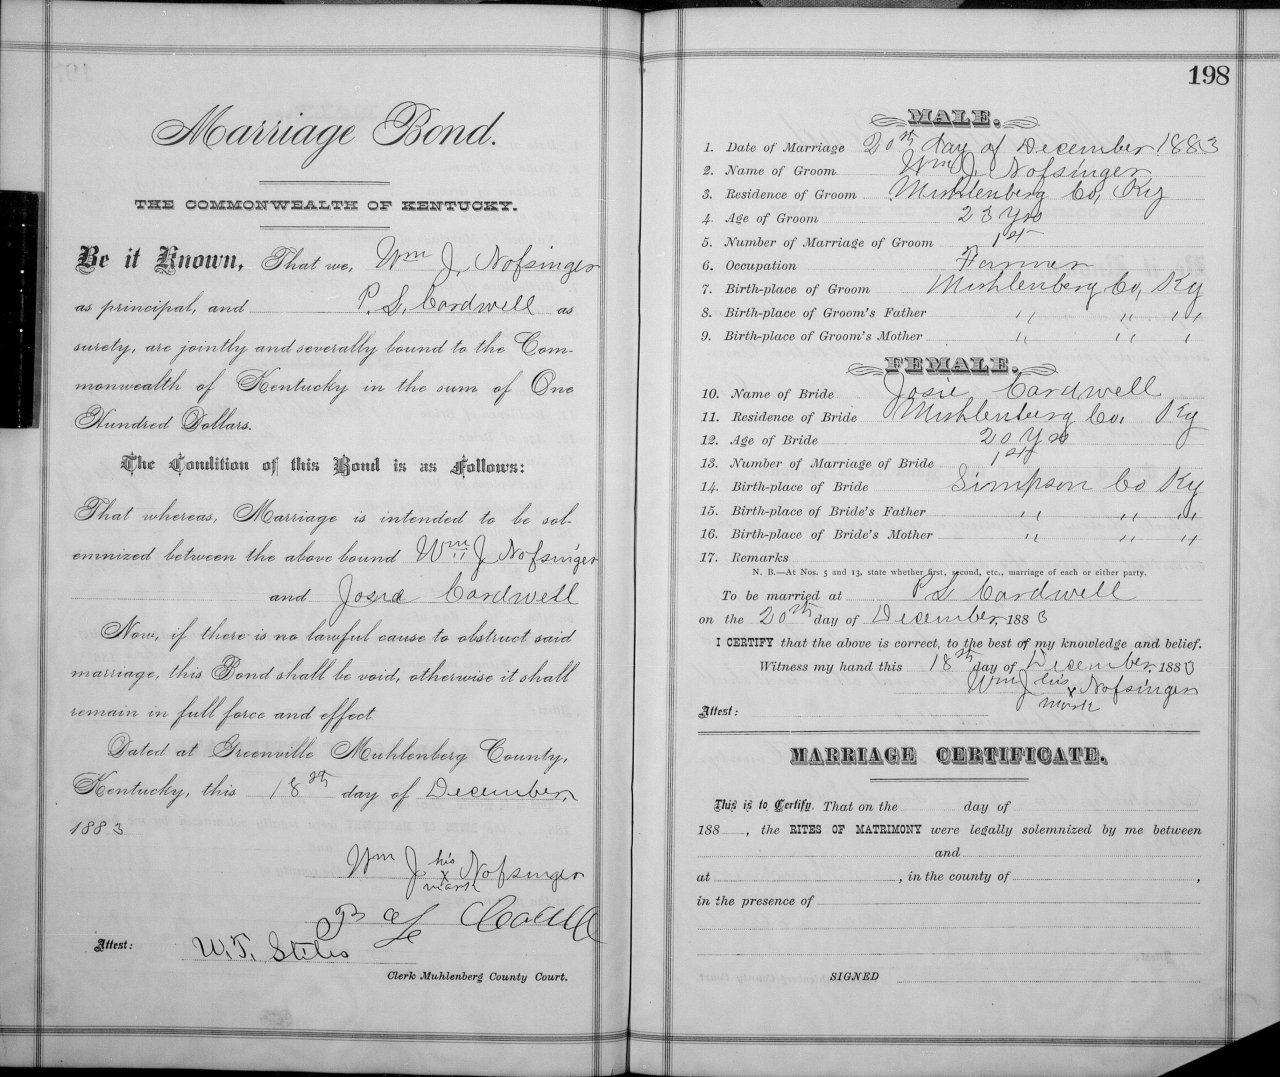 Marriage Bond.
THE COMMONWEALTH OF KENTUCKY.
Be it Known, That we, Wm J. Nofsinger
as principal, and P. L. Cardwell as
surety, are jointly and severally bound to the Com-
monwealth of Kentucky in the sum of One
Hundred Dollars.
The Condition of this Bond is as Follows:
That whereas, Marriage is intended to be sol-
emnized between the above bound Wm J Nofsinger
and Josie Cardwell
Now, if there is no lawful cause to obstruct said
marriage, this Bond shall be void, otherwise it shall
remain in full force and effect
Dated at Greenville Muhlenberg County,
Kentucky, this 18th day of December,
1883
Wm J his x mark Nofsinger
P L
Attest: W. T. Stiles
Clerk Muhlenberg County Court.
198
MALE.
1. Date of Marriage 20th day of December 1883
2. Name of Groom Wm J. Nofsinger
3. Residence of Groom Muhlenberg Co, Ky
4. Age of Groom 23 yrs
5. Number of Marriage of Groom 1st
6. Occupation Farmer
7. Birth-place of Groom Muhlenberg Co, Ky
8. Birth-place of Groom's Father " " "
9. Birth-place of Groom's Mother " " "
FEMALE.
10. Name of Bride Josie Cardwell
11. Residence of Bride Muhlenberg Co, Ky
12. Age of Bride 20 yrs
13. Number of Marriage of Bride 1st
14. Birth-place of Bride Simpson Co Ky
15. Birth-place of Bride's Father " " "
16. Birth-place of Bride's Mother " " "
17. Remarks
N. B.—At Nos. 5 and 13, state whether first, second, etc., marriage of each or either party.
To be married at P L Cardwell
on the 20th day of December, 1883
I CERTIFY that the above is correct, to the best of my knowledge and belief.
Witness my hand this 18th day of December, 1883
Wm J his x mark Nofsinger
Attest:
MARRIAGE CERTIFICATE.
This is to Certify, That on the day of
188 , the RITES OF MATRIMONY were legally solemnized by me between
and
at , in the county of ,
in the presence of
SIGNED